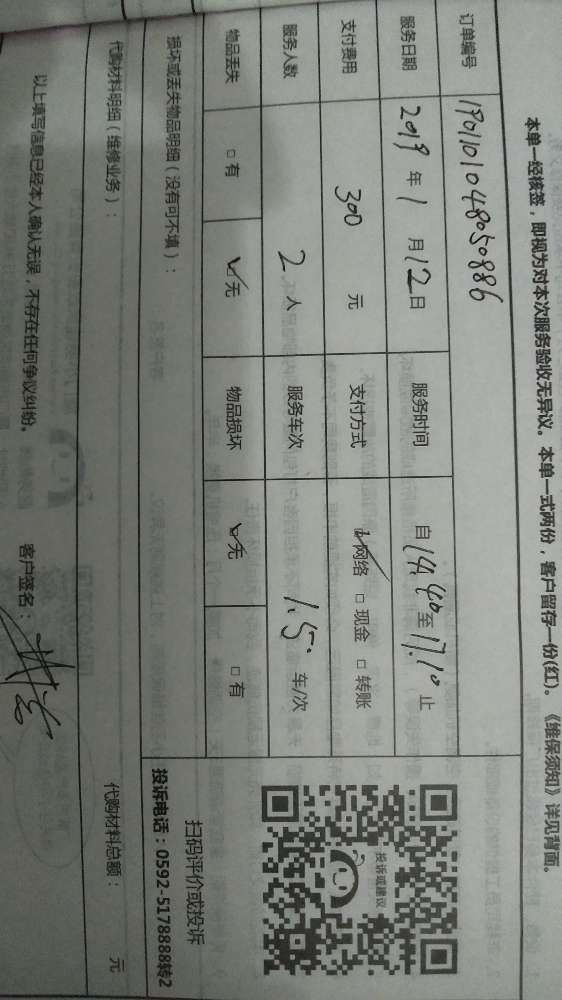 本单一经核签，即视为对本次服务验收无异议。本单一式两份，客户留存一份(红)。《维保须知》详见背面。
订单编号 1901101048050886
服务日期 2019 年 1 月 12 日 服务时间 自 14.40 至 17.10 止
支付费用 300 元 支付方式 ☑ 网络 □ 现金 □ 转账
服务人数 2 人 服务车次 1.5. 车/次
物品丢失 □ 有 ☑ 无 物品损坏 ☑ 无 □ 有
投诉或建议
扫码评价或投诉
投诉电话：0592-5178888转2
损坏或丢失物品明细（没有可不填）：
代购材料明细（维修业务）： 代购材料总额： 元
以上填写信息已经本人确认无误，不存在任何争议纠纷。 客户签名：